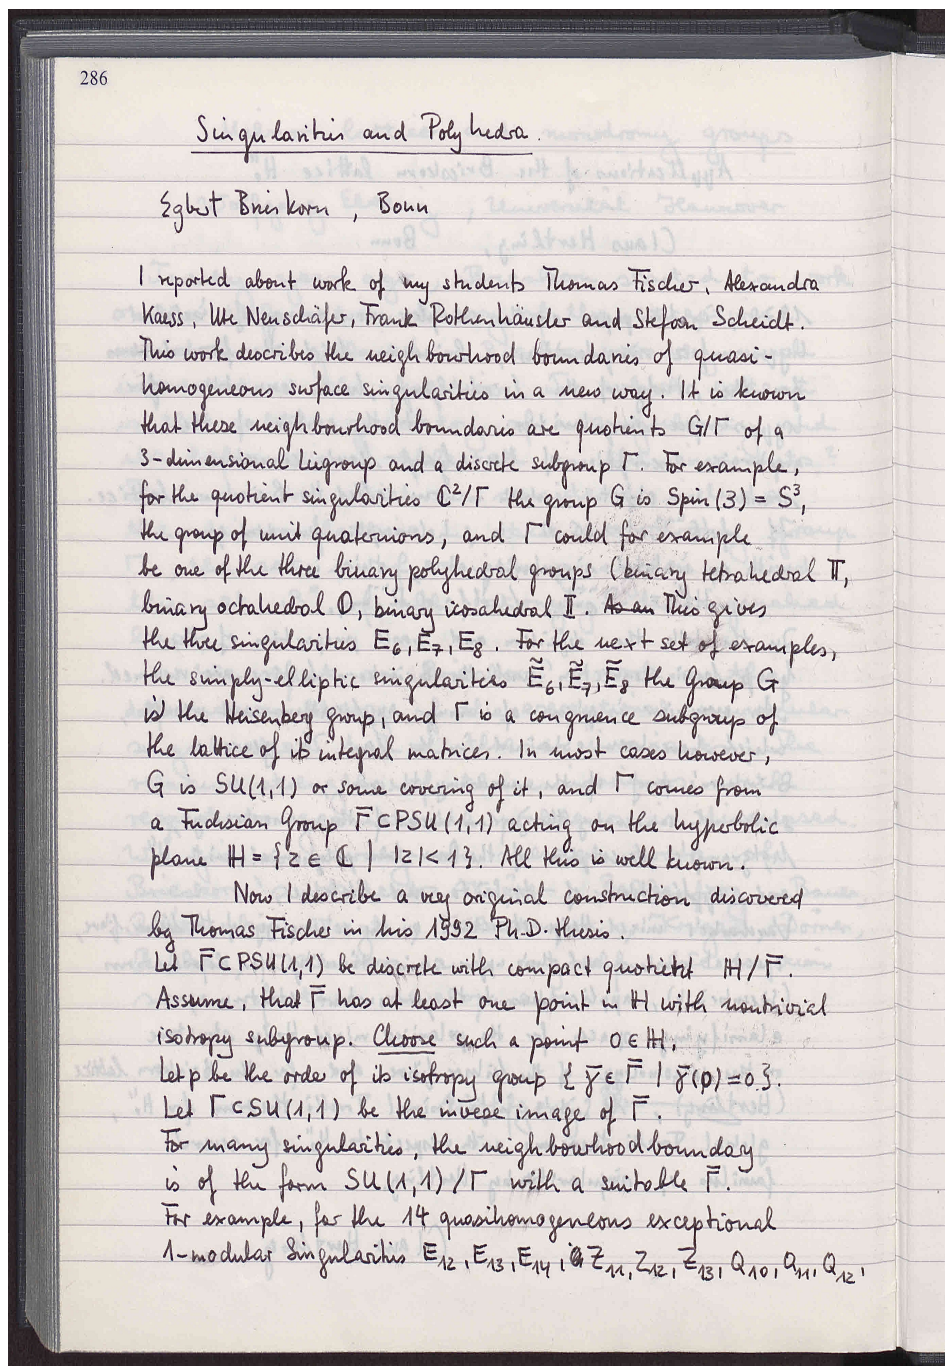 286
Singularities and Polyhedra.
Egbert Brieskorn, Bonn
I reported about work of my students Thomas Fischer, Alexandra
Kaess, Ute Neuschäfer, Frank Rothenhäusler and Stefan Scheidt.
This work describes the neighbourhood boundaries of quasi-
homogeneous surface singularities in a new way. It is known
that these neighbourhood boundaries are quotients G/Γ of a
3-dimensional Liegroup and a discrete subgroup Γ. For example,
for the quotient singularities ℂ²/Γ the group G is Spin(3) = S³,
the group of unit quaternions, and Γ could for example
be one of the three binary polyhedral groups (binary tetrahedral 𝕋,
binary octahedral 𝕆, binary icosahedral 𝕀. As an This gives
the three singularities E₆, E₇, E₈. For the next set of examples,
the simply-elliptic singularities Ẽ₆, Ẽ₇, Ẽ₈ the Group G
is the Heisenberg group, and Γ is a congruence subgroup of
the lattice of its integral matrices. In most cases however,
G is SU(1,1) or some covering of it, and Γ comes from
a Fuchsian Group Γ̄ ⊂ PSU(1,1) acting on the hyperbolic
plane ℍ = {z ∈ ℂ | |z| < 1}. All this is well known.
Now I describe a very original construction discovered
by Thomas Fischer in his 1992 Ph.D. thesis.
Let Γ̄ ⊂ PSU(1,1) be discrete with compact quotient ℍ/Γ̄.
Assume, that Γ̄ has at least one point in ℍ with nontrivial
isotropy subgroup. Choose such a point 0 ∈ ℍ.
Let p be the order of its isotropy group {γ̄ ∈ Γ̄ | γ̄(0) = 0}.
Let Γ ⊂ SU(1,1) be the inverse image of Γ̄.
For many singularities, the neighbourhood boundary
is of the form SU(1,1)/Γ with a suitable Γ̄.
For example, for the 14 quasihomogeneous exceptional
1-modular Singularities E₁₂, E₁₃, E₁₄, Z₁₁, Z₁₂, Z₁₃, Q₁₀, Q₁₁, Q₁₂,